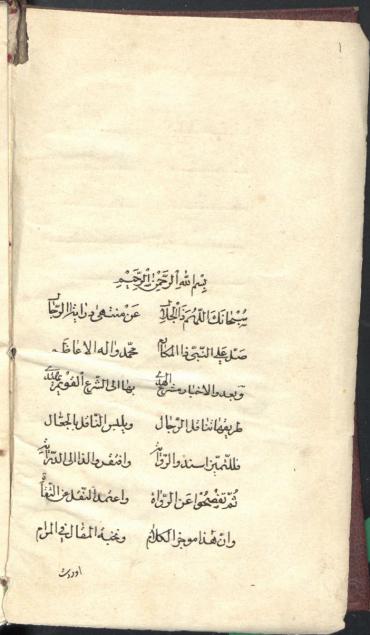 ١
بسم الله الرحمن الرحيم
سبحانك اللهم ذا الجلال عن منتهى دراية الرجال
صل على النبي ذا المكارم محمد واله الاعاظم
وبعد والاخبار مشرع الهدى بها الى الشرع القويم
طريقها تناقل الرجال ويلبس الناقل بالجمال
فللتميز اسند والرواية وافتقروا لذا الى الدراية
ثم تفصحوا عن الرواة واعتمد النقل عن الثقات
وان هذا موجز الكلام ونخبة المقال في المرام
اوردت